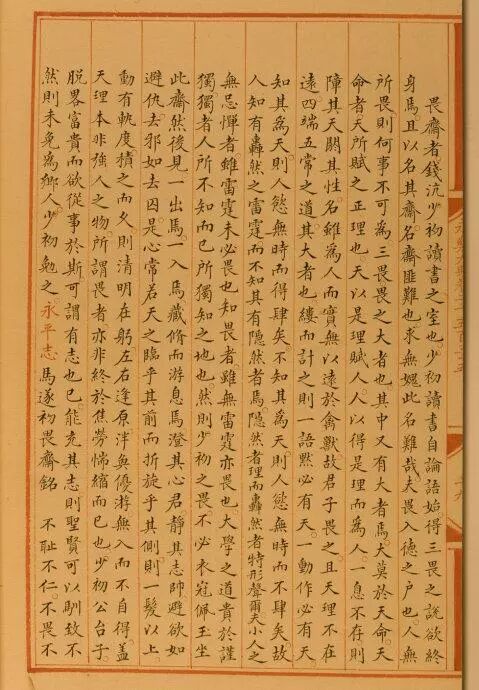 畏齋者錢沆少初讀書之室也少初讀書自論語始得三畏之說欲終
身焉且以名其齋名齋匪難也求無媿此名難哉夫畏入德之戶也人無
所畏則何事不可為三畏畏之大者也其中又有大者焉大莫於天命天
命者天所賦之正理也天以是理賦人人以得是理而為人一息不存則
障其天閼其性名雖為人而實無以遠於禽獸故君子畏之且天理不在
遠四端五常之道其大者也縷而計之則一語默必有天一動作必有天
知其為天則人慾無時而得肆矣不知其為天則人慾無時而不肆矣故
人知有轟然之雷霆而不知其有隱然者焉隱然者理而轟然者特形聲爾夫小人之
無忌憚者雖雷霆未必畏也知畏者雖無雷霆亦畏也大學之道貴於謹
獨獨者人所不知而已所獨知之地也然則少初之畏不必衣冠佩玉坐
此齋然後見一出焉一入焉藏脩而游息焉澄其心君靜其志帥避欲如
避仇去邪如去囚是心常若天之臨乎其前而折旋乎其側則一髮以上
動有軌度積之而久則清明在躬左右逢原泮奐優游無入而不自得蓋
天理本非強人之物所謂畏者亦非終於焦勞惴縮而已也少初公台子
脫畧富貴而欲從事於斯可謂有志也已能充其志則聖賢可以馴致不
然則未免為鄉人少初勉之永平志馬遂初畏齋銘 不恥不仁不畏不